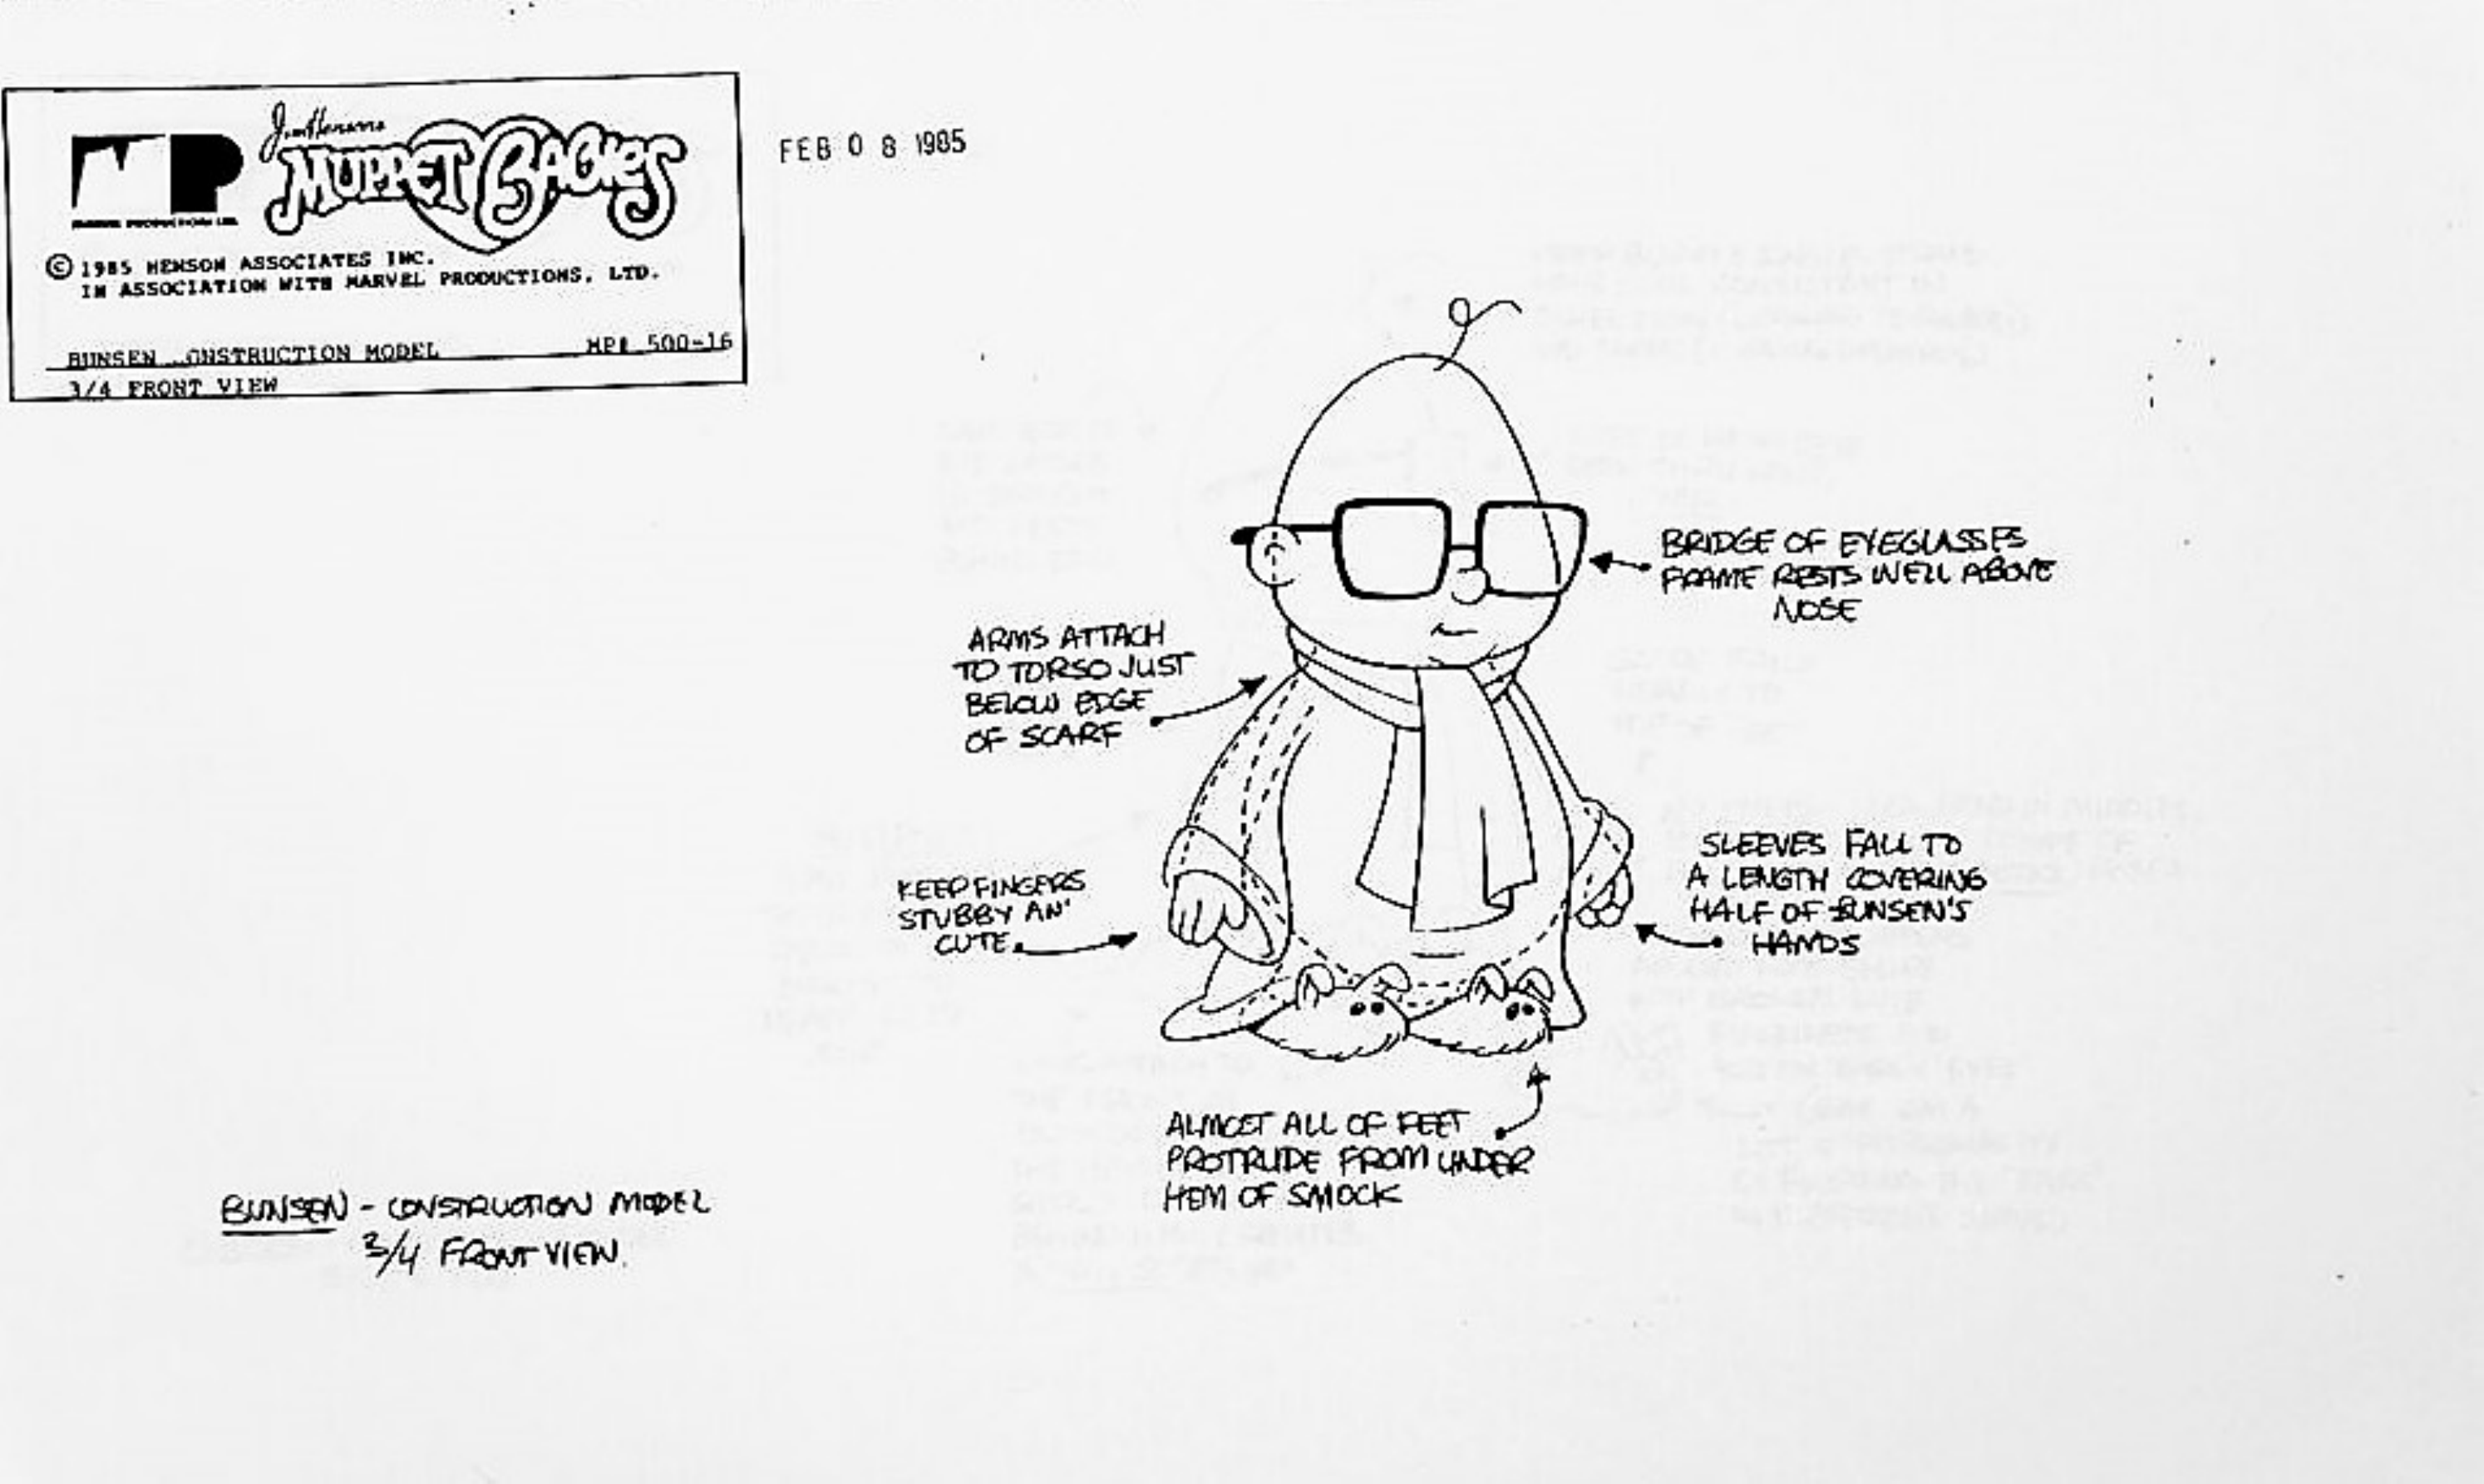 Jim Henson's
MUPPET BABIES
MARVEL PRODUCTIONS LTD.
© 1985 HENSON ASSOCIATES INC.
IN ASSOCIATION WITH MARVEL PRODUCTIONS, LTD.
BUNSEN CONSTRUCTION MODEL MP# 500-16
3/4 FRONT VIEW
FEB 08 1985
BRIDGE OF EYEGLASSES
FRAME RESTS WELL ABOVE
NOSE
ARMS ATTACH
TO TORSO JUST
BELOW EDGE
OF SCARF
KEEP FINGERS
STUBBY AN'
CUTE.
SLEEVES FALL TO
A LENGTH COVERING
HALF OF BUNSEN'S
HANDS
ALMOST ALL OF FEET
PROTRUDE FROM UNDER
HEM OF SMOCK
BUNSEN - CONSTRUCTION MODEL
3/4 FRONT VIEW.